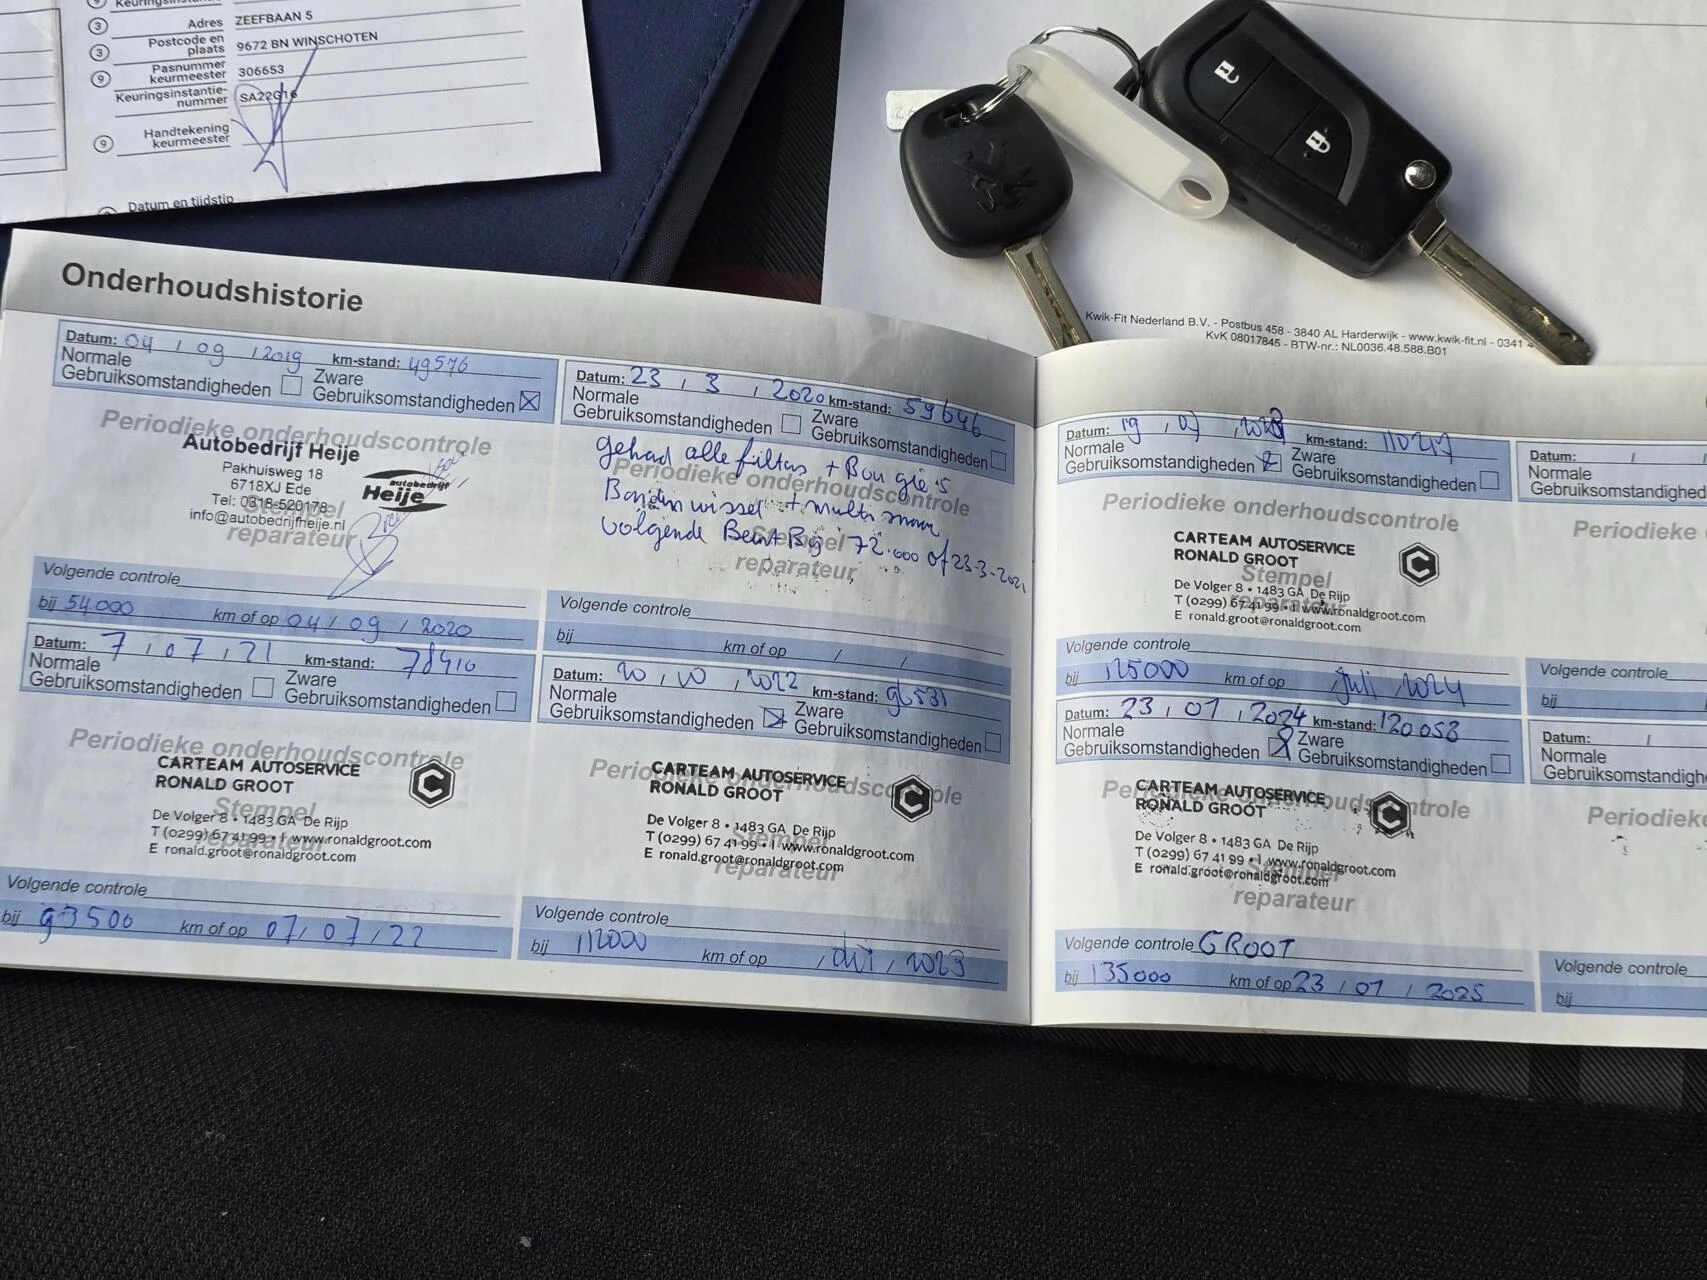 Keuringsinstantie
3 Adres ZEEFBAAN 5
3 Postcode en plaats 9672 BN WINSCHOTEN
9 Pasnummer keurmeester 306653
Keuringsinstantie-nummer SA22G16
9 Handtekening keurmeester
Datum en tijdstip
Kwik-Fit Nederland B.V. - Postbus 458 - 3840 AL Harderwijk - www.kwik-fit.nl - 0341 4
KvK 08017845 - BTW-nr.: NL0036.48.588.B01
Onderhoudshistorie
Datum: 04 / 09 / 2019 km-stand: 49576
Normale Gebruiksomstandigheden
Zware Gebruiksomstandigheden
Periodieke onderhoudscontrole
Autobedrijf Heije
Pakhuisweg 18
6718XJ Ede
Tel: 0318-520178
info@autobedrijfheije.nl
autobedrijf
Heije
Stempel
reparateur
Volgende controle
bij 54.000 km of op 04 / 09 / 2020
Datum: 23 / 3 / 2020 km-stand: 59646
Normale Gebruiksomstandigheden
Zware Gebruiksomstandigheden
gehad alle filters + Bougie's
Periodieke onderhoudscontrole
Banden wissel +
volgende Beurt Bij 72.000 of 23-3-2021
Stempel
reparateur
Volgende controle
bij km of op / /
Datum: 7 / 07 / 21 km-stand: 78410
Normale Gebruiksomstandigheden
Zware Gebruiksomstandigheden
Periodieke onderhoudscontrole
CARTEAM AUTOSERVICE
RONALD GROOT
Stempel
De Volger 8 • 1483 GA De Rijp
T (0299) 67 41 99 • I www.ronaldgroot.com
reparateur
E ronald.groot@ronaldgroot.com
Volgende controle
bij 93500 km of op 07 / 07 / 22
Datum: / / 2022 km-stand: 96531
Normale Gebruiksomstandigheden
Zware Gebruiksomstandigheden
Periodieke onderhoudscontrole
CARTEAM AUTOSERVICE
RONALD GROOT
De Volger 8 • 1483 GA De Rijp
Stempel
T (0299) 67 41 99 • I www.ronaldgroot.com
E ronald.groot@ronaldgroot.com
reparateur
Volgende controle
bij 112000 km of op / / 2023
Datum: 19 / 07 / 2023 km-stand: 110217
Normale Gebruiksomstandigheden
Zware Gebruiksomstandigheden
Periodieke onderhoudscontrole
CARTEAM AUTOSERVICE
RONALD GROOT
Stempel
De Volger 8 • 1483 GA De Rijp
reparateur
T (0299) 67 41 99 • I www.ronaldgroot.com
E ronald.groot@ronaldgroot.com
Volgende controle
bij 125000 km of op juli / 2024
Datum: 23 / 07 / 2024 km-stand: 120058
Normale Gebruiksomstandigheden
Zware Gebruiksomstandigheden
Periodieke onderhoudscontrole
CARTEAM AUTOSERVICE
RONALD GROOT
De Volger 8 • 1483 GA De Rijp
T (0299) 67 41 99 • I www.ronaldgroot.com
Stempel
E ronald.groot@ronaldgroot.com
reparateur
Volgende controle GROOT
bij 135000 km of op 23 / 07 / 2025
Datum: / /
Normale
Gebruiksomstandigheden
Periodieke
Volgende controle
bij
Datum: /
Normale
Gebruiksomstandigh
Periodieke
Volgende controle
bij